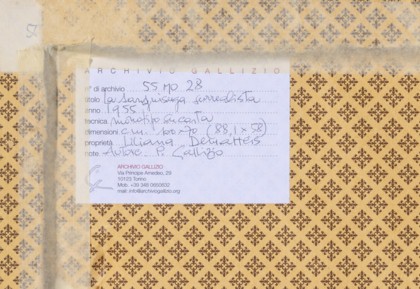 ARCHIVIO GALLIZIO
n° di archivio 55 MO 28
titolo la sanguisuga surrealista
anno 1955
tecnica monotipo su carta
dimensioni cm. 100×70 (88,1 × 58)
proprietà Liliana Dematteis
note Autoc. P. Gallizio
ARCHIVIO GALLIZIO
Via Principe Amedeo, 29
10123 Torino
Mob. +39 349 0693632
mail: info@archiviogallizio.org